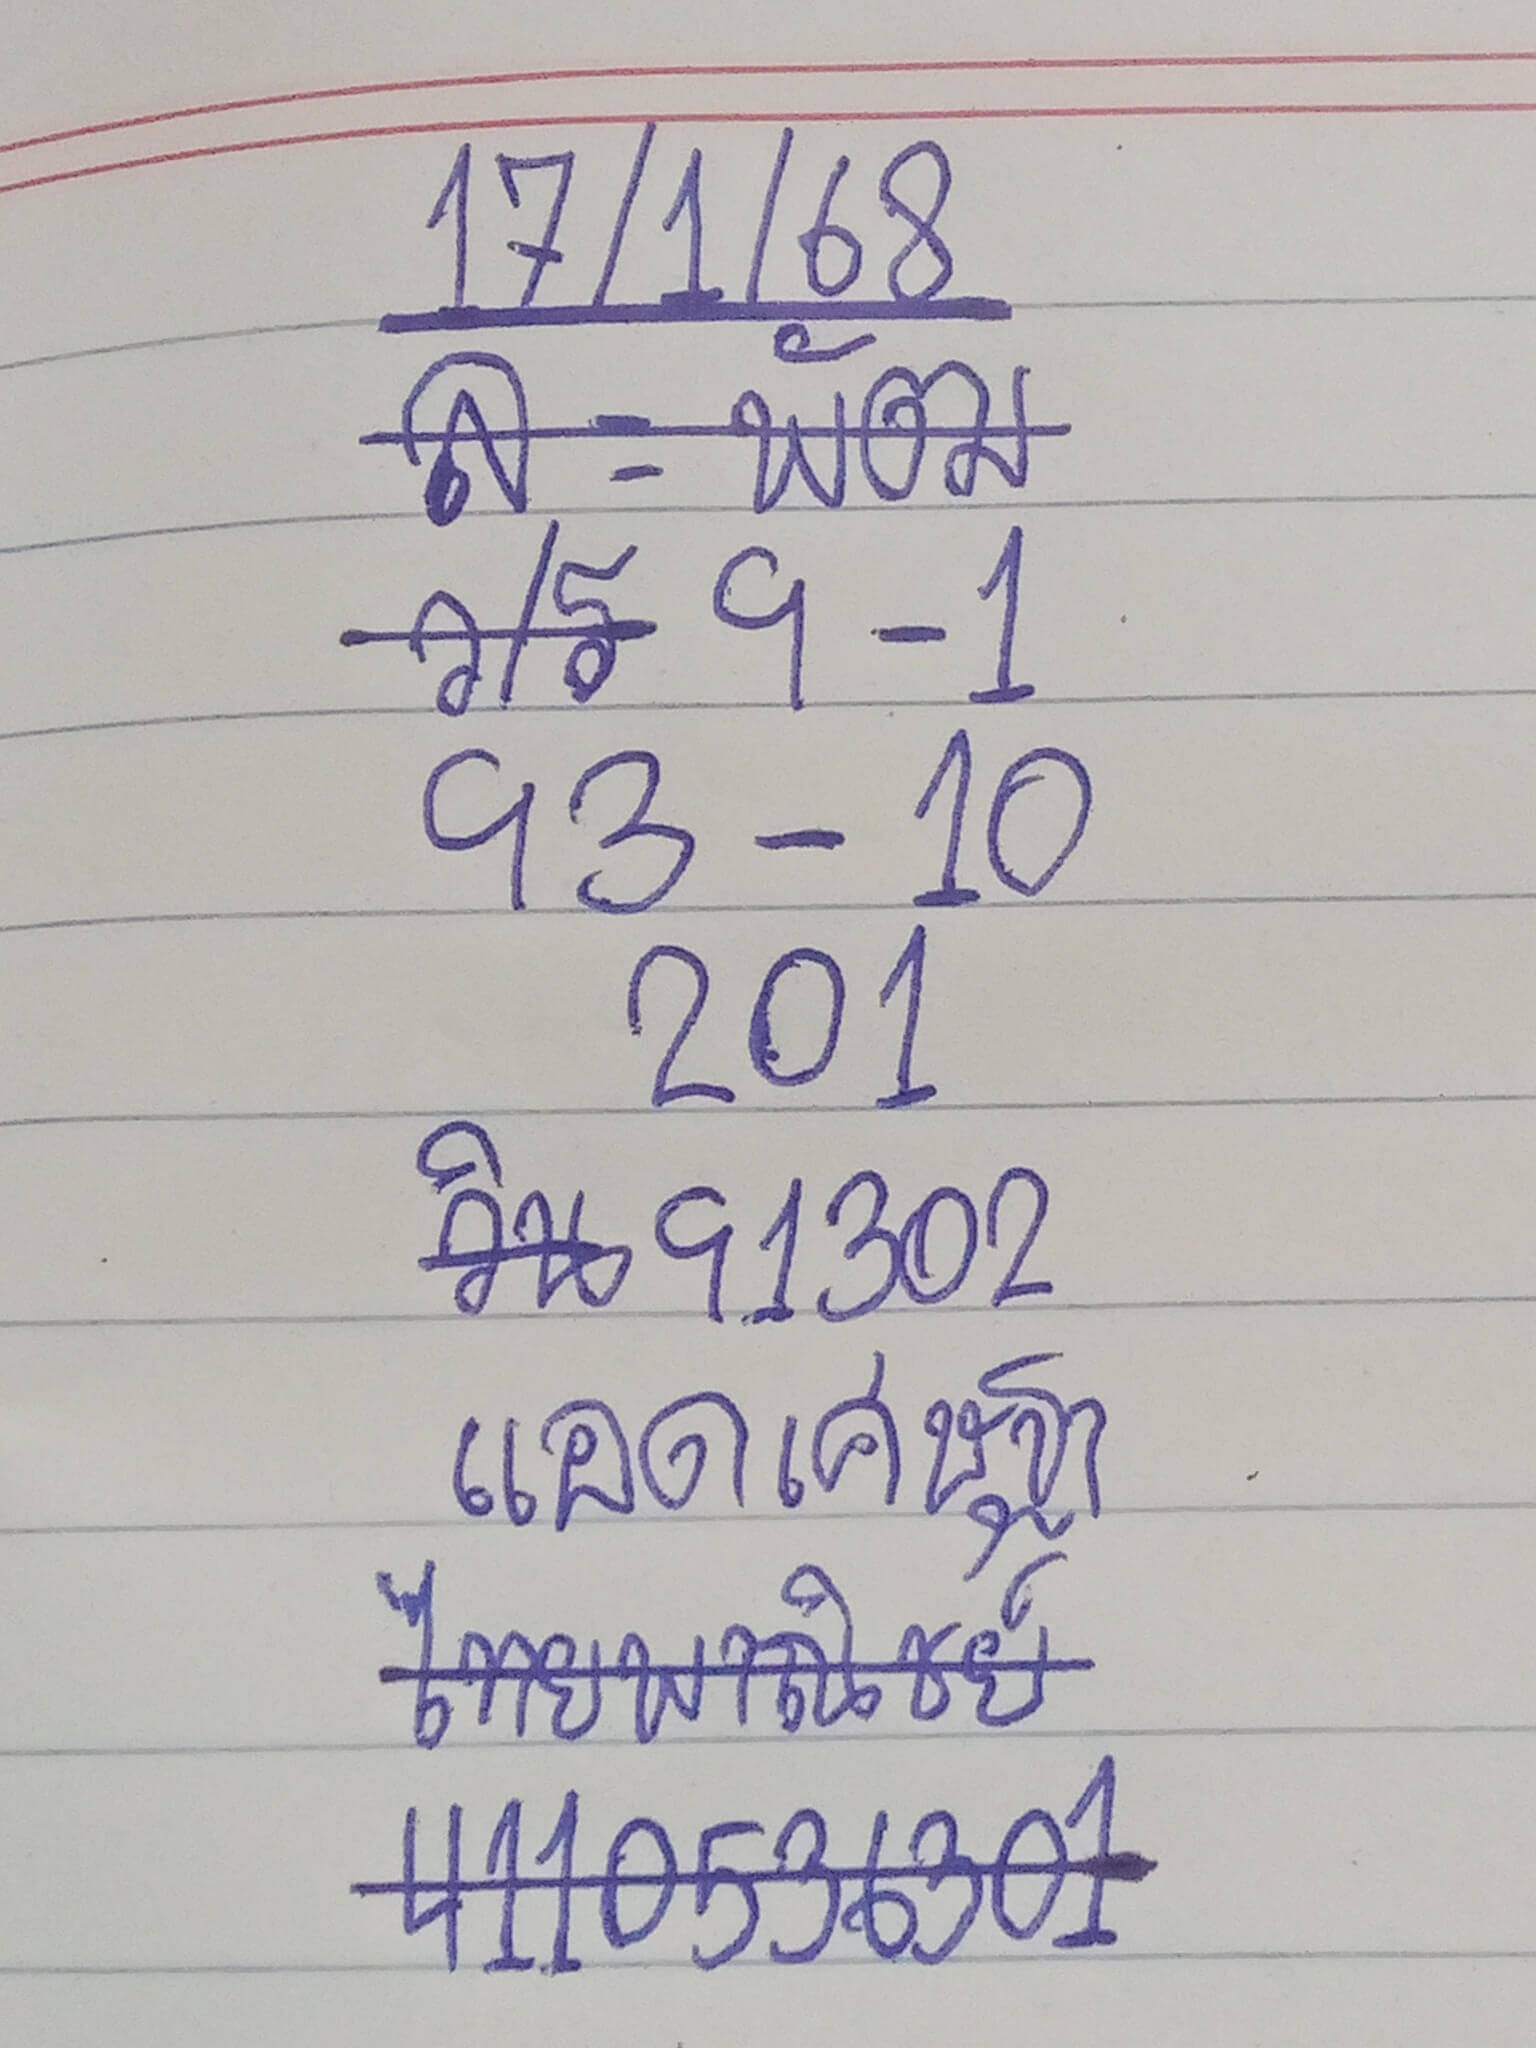 17/1/68
ฬ = พ้อม
ว/ธ 9 - 1
93 - 10
201
วิน 91302
แอดเศษฐา
ไทยพาณิชย์
4110536301